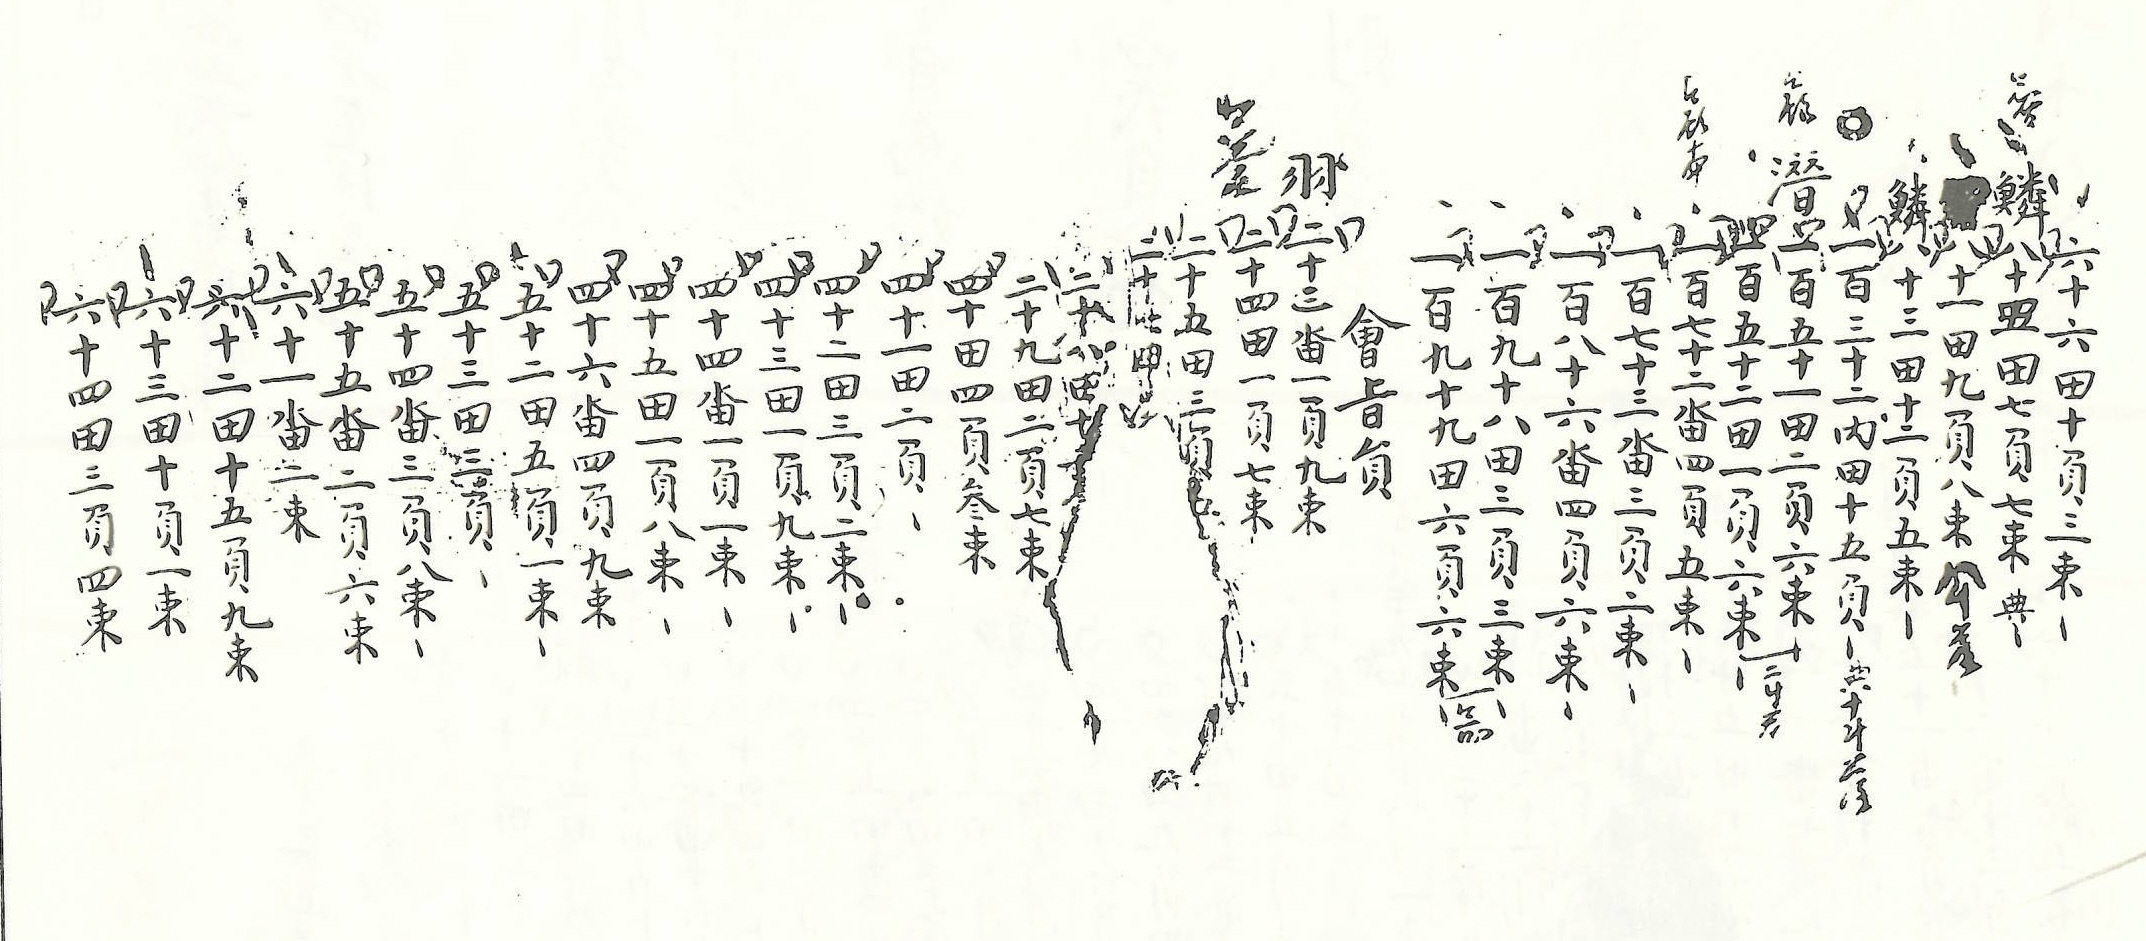 六十六田十負三束
鱗八十四田七負七束 典
十一田九負八束
鱗八十三田十二負五束
一百三十二內田十五負 典十斗落
潛 一百五十一田二負六束
一百五十二田一負六束 二斗落
一百七十二畓四負五束
一百七十三畓三負二束
一百八十六畓四負六束
一百九十八田三負三束
一百九十九田六負六束
會旨員
羽二十三畓一負九束
二十四田一負七束
二十五田三負
二十八田
二十九田二負七束
四十田四負叁束
四十一田二負
四十二田三負二束
四十三田一負九束
四十四畓一負一束
四十五田一負八束
四十六畓四負九束
五十二田五負一束
五十三田三負
五十四畓三負八束
五十五畓二負六束
六十一畓二束
六十二田十五負九束
六十三田十負一束
六十四田三負四束